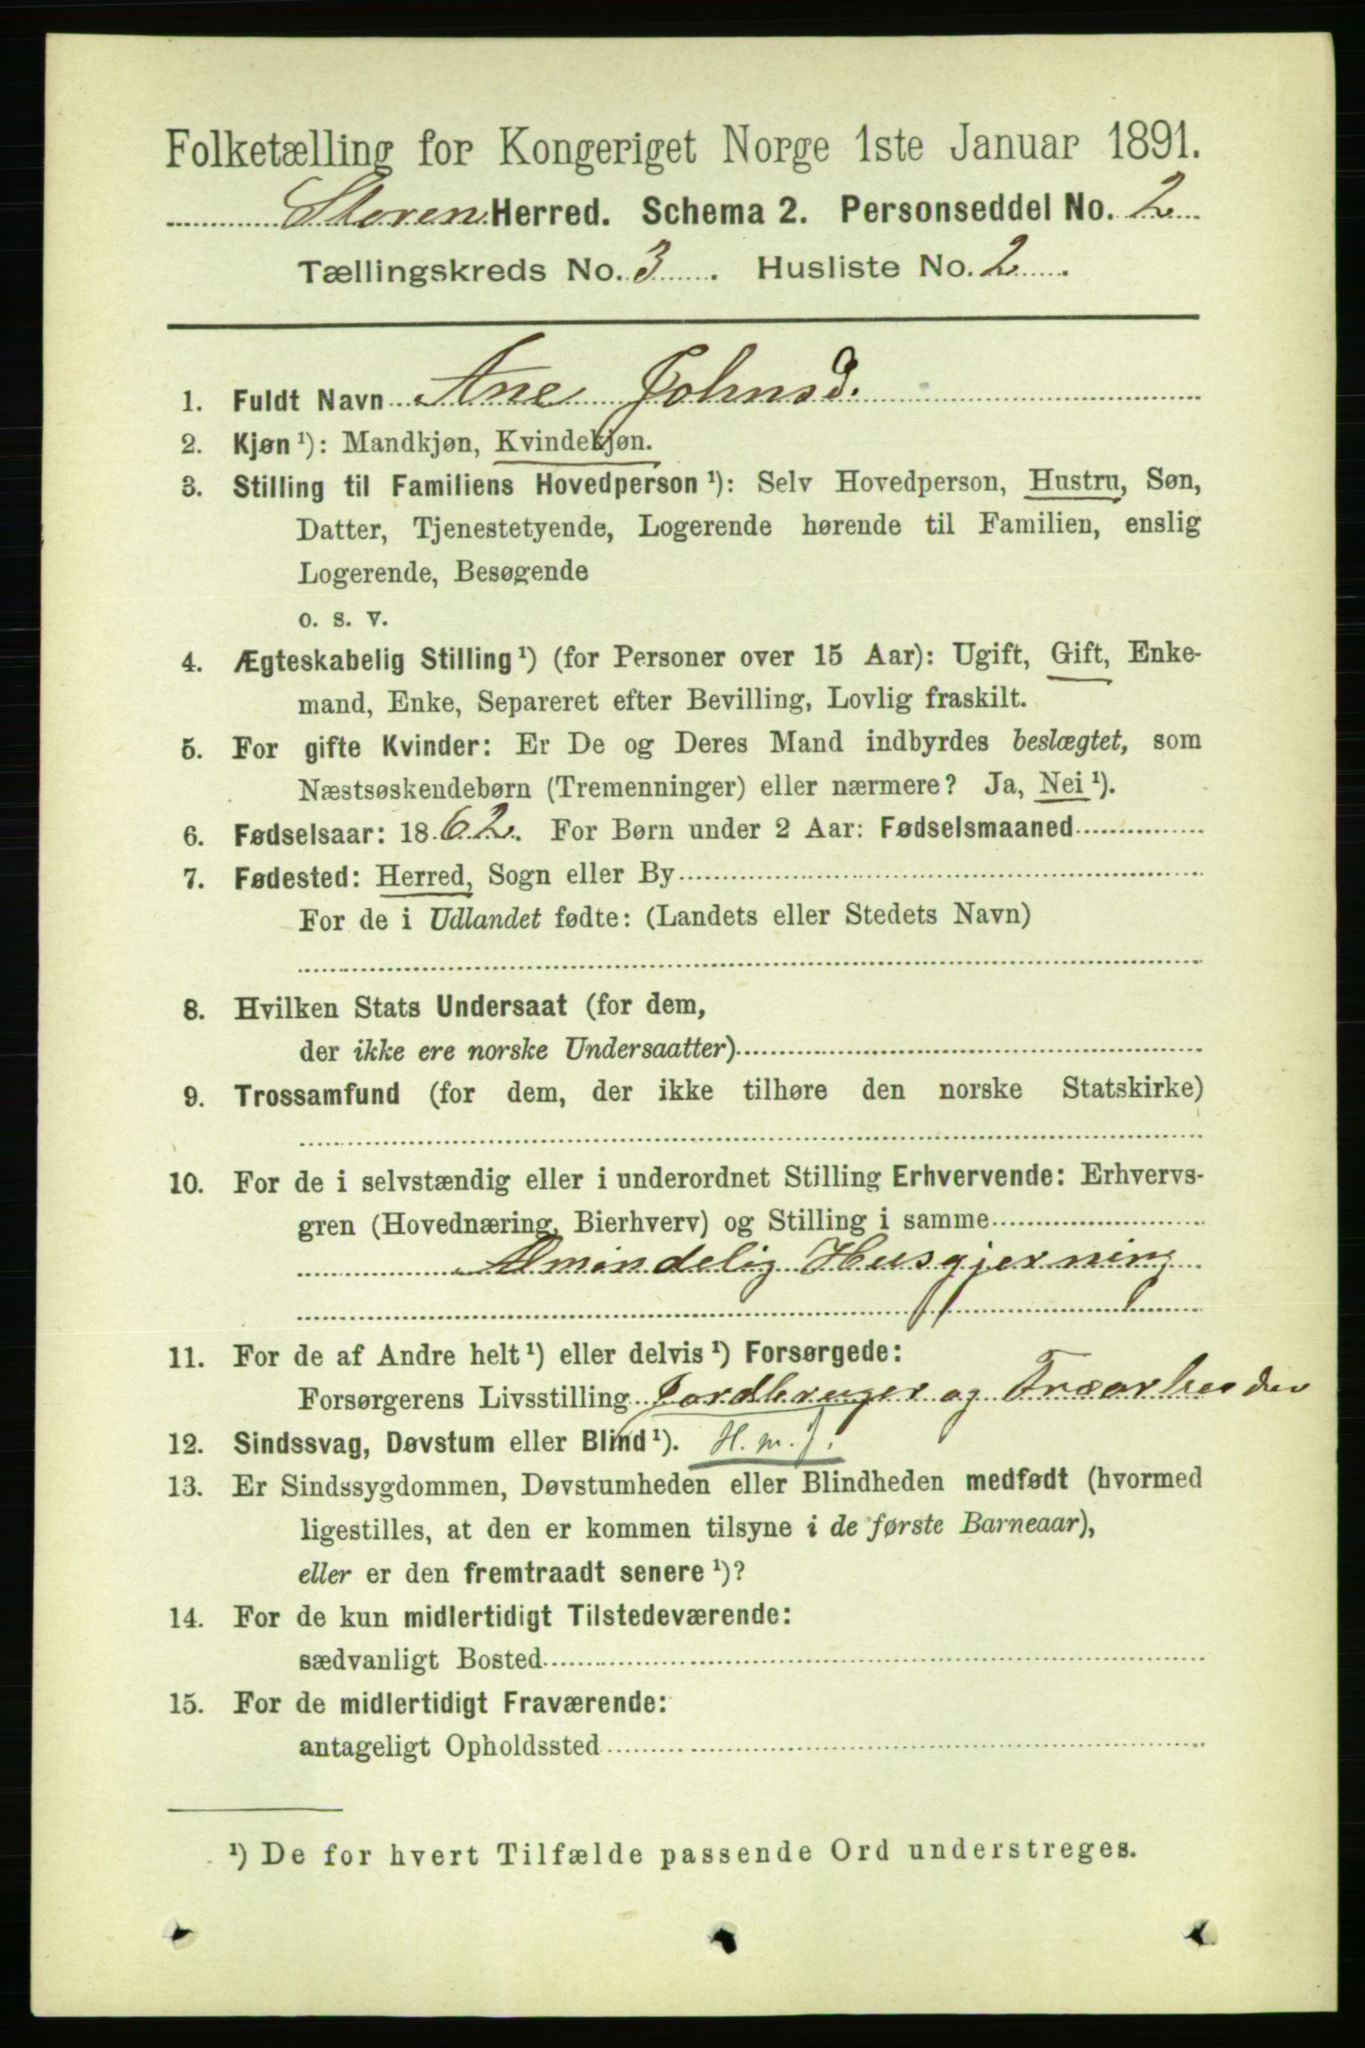 Folketælling for Kongeriget Norge 1ste Januar 1891.
Støren Herred. Schema 2. Personseddel No. 2
Tællingskreds No. 3. Husliste No. 2.
1. Fuldt Navn Ane Johnsd.
2. Kjøn ¹): Mandkjøn, Kvindekjøn.
3. Stilling til Familiens Hovedperson ¹): Selv Hovedperson, Hustru, Søn,
Datter, Tjenestetyende, Logerende hørende til Familien, enslig
Logerende, Besøgende
o. s. v.
4. Ægteskabelig Stilling ¹) (for Personer over 15 Aar): Ugift, Gift, Enke-
mand, Enke, Separeret efter Bevilling, Lovlig fraskilt.
5. For gifte Kvinder: Er De og Deres Mand indbyrdes beslægtet, som
Næstsøskendebørn (Tremenninger) eller nærmere? Ja, Nei ¹).
6. Fødselsaar: 1862. For Børn under 2 Aar: Fødselsmaaned
7. Fødested: Herred, Sogn eller By
For de i Udlandet fødte: (Landets eller Stedets Navn)
8. Hvilken Stats Undersaat (for dem,
der ikke ere norske Undersaatter)
9. Trossamfund (for dem, der ikke tilhøre den norske Statskirke)
10. For de i selvstændig eller i underordnet Stilling Erhvervende: Erhvervs-
gren (Hovednæring, Bierhverv) og Stilling i samme
Almindelig Husgjerning
11. For de af Andre helt ¹) eller delvis ¹) Forsørgede:
Forsørgerens Livsstilling Jordbruger og Træarbeider
12. Sindssvag, Døvstum eller Blind ¹). H. m. J.
13. Er Sindssygdommen, Døvstumheden eller Blindheden medfødt (hvormed
ligestilles, at den er kommen tilsyne i de første Barneaar),
eller er den fremtraadt senere ¹)?
14. For de kun midlertidigt Tilstedeværende:
sædvanligt Bosted
15. For de midlertidigt Fraværende:
antageligt Opholdssted
¹) De for hvert Tilfælde passende Ord understreges.